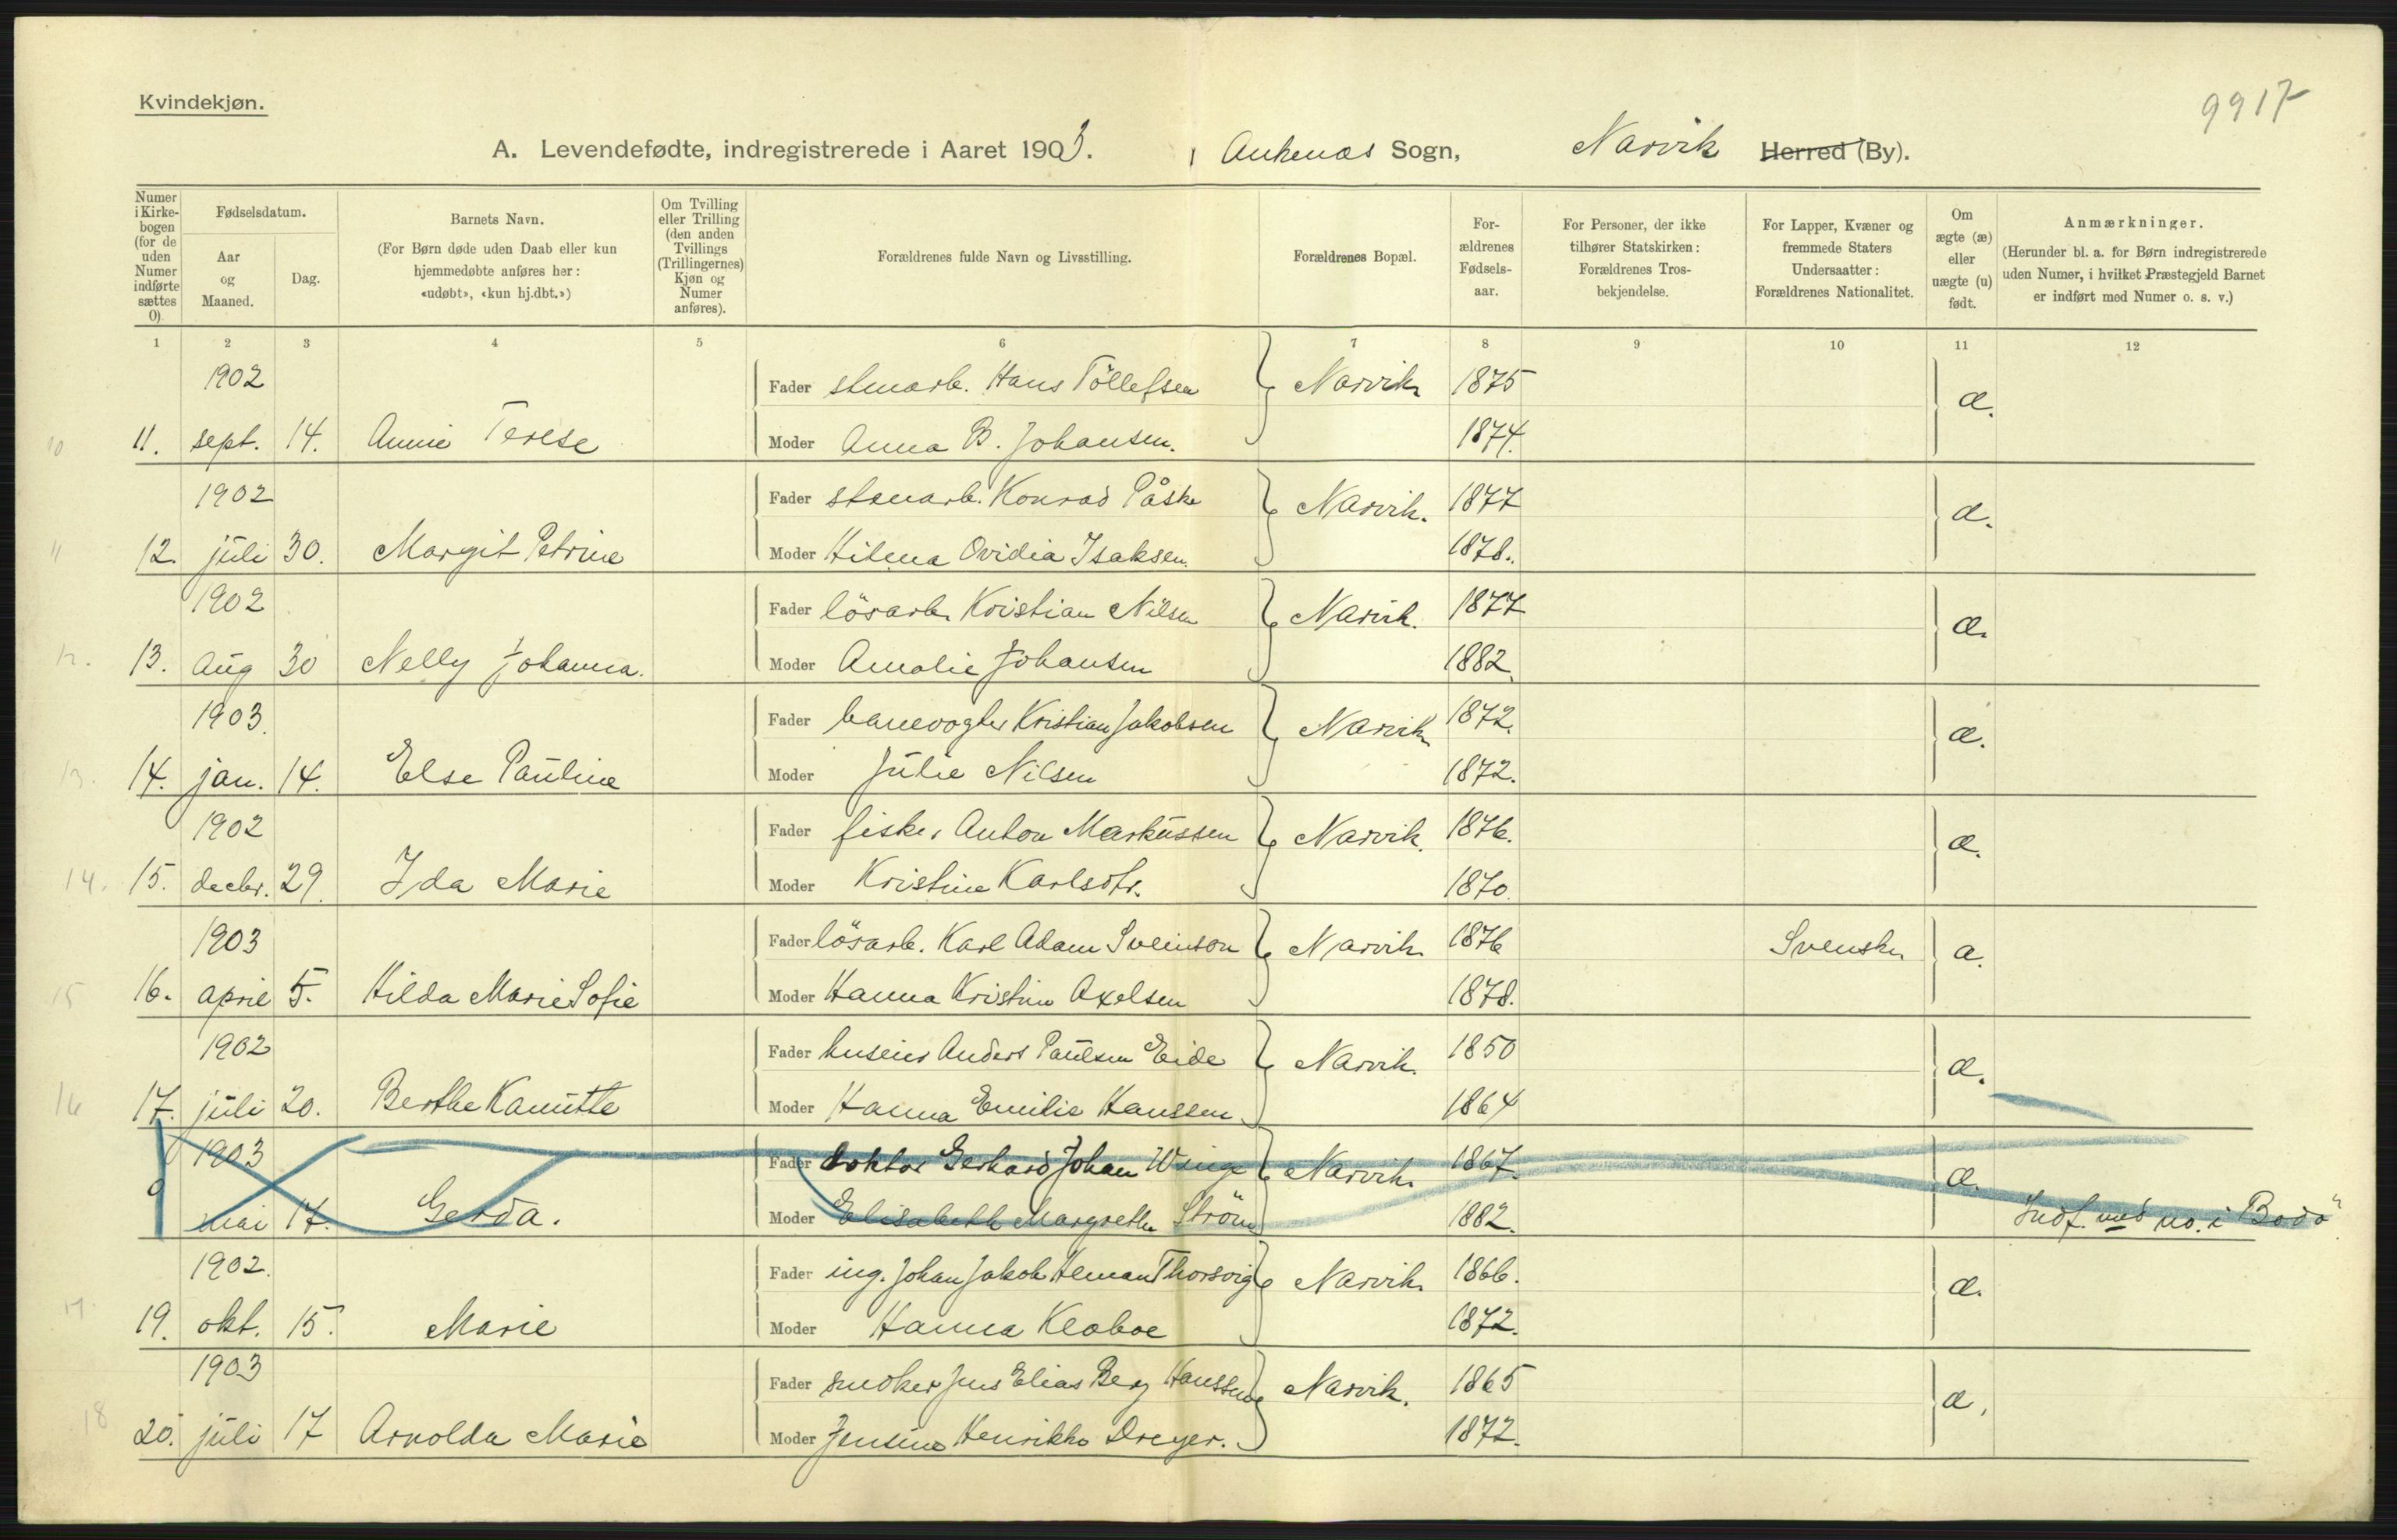 Kvindekjøn.
9917
A. Levendefødte, indregistrerede i Aaret 1903. i Ankenæs Sogn, Narvik Herred (By).
Numer i Kirkebogen (for de uden Numer indførte sættes 0)
Fødselsdatum.
Aar og Maaned.
Dag.
Barnets Navn.
(For Børn døde uden Daab eller kun hjemmedøbte anføres her: «udøbt», «kun hj.dbt.»)
Om Tvilling eller Trilling (den anden Tvillings (Trillingernes) Kjøn og Numer anføres).
Forældrenes fulde Navn og Livsstilling.
Forældrenes Bopæl.
Forældrenes Fødselsaar.
For Personer, der ikke tilhører Statskirken: Forældrenes Trosbekjendelse.
For Lapper, Kvæner og fremmede Staters Undersaatter: Forældrenes Nationalitet.
Om ægte (æ) eller uægte (u) født.
Anmærkninger.
(Herunder bl. a. for Børn indregistrerede uden Numer, i hvilket Præstegjeld Barnet er indført med Numer o. s. v.)
1 2 3 4 5 6 7 8 9 10 11 12
1902 Fader stenarb. Hans Töllefsen Narvik 1875 æ.
10 11. sept. 14. Annie Terese Moder Anna B. Johansen. 1874.
1902 Fader stenarb. Konrad Påske Narvik. 1877 æ.
11 12. juli 30. Margit Petrine Moder Hilma Ovidia Isaksen. 1878.
1902 Fader lösarb. Kristian Nilsen Narvik. 1877 æ.
12. 13. Aug 30 Nelly Johanna. Moder Amalie Johansen 1882.
1903. Fader banevogter Kristian Jakobsen Narvik 1872. æ.
13. 14. jan. 14. Else Pauline Moder Julie Nilsen 1872.
1902 Fader fisker Anton Markussen Narvik. 1876. æ.
14. 15. decbr. 29. Ida Marie Moder Kristine Karlsdtr. 1870.
1903 Fader lösarb. Karl Adam Sveinson Narvik 1876 Svensk. æ.
15 16. april 5. Hilda Marie Sofie Moder Hanna Kristine Axelsen 1878.
1902 Fader huseier Anders Paulsen Eide Narvik. 1850 æ.
16 17. juli 20. Berthe Kanutte Moder Hanna Emilie Hanssen 1864
1903 Fader doktor Gerhard Johan Winge Narvik. 1867. æ.
0 mai 17. Gerda. Moder Elisabeth Margrethe Ström 1882. Indf. med no. i Bodö.
1902. Fader ing. Johan Jakob Heman Thorsvig Narvik. 1866. æ.
17. 19. okt. 15. Marie Moder Hanna Kloboe 1872.
1903 Fader snedker Jens Elias Berg Hanssen Narvik. 1865 æ.
18 20. juli 17 Arnolda Marie Moder Jensine Henrikke Dreyer. 1872.